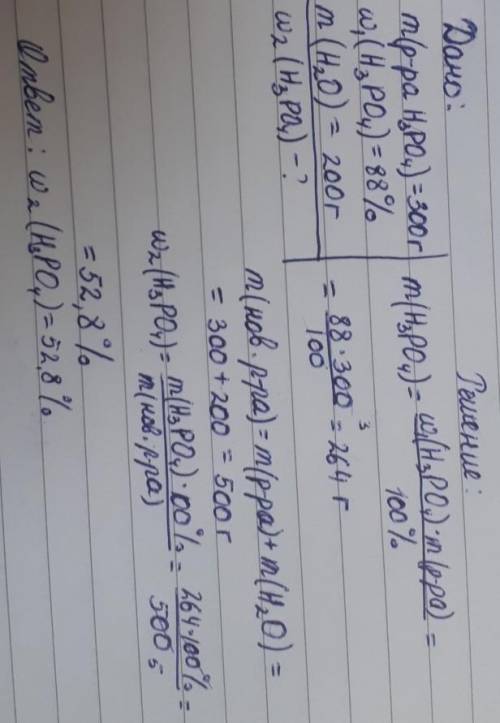 Дано:
m(р-ра H₃PO₄)=300г
w₁(H₃PO₄)=88%
m(H₂O)=200г
w₂(H₃PO₄)-?
Решение:
m(H₃PO₄)= w₁(H₃PO₄)·m(р-ра) / 100% =
= 88·300³ / 100 = 264 г
m(нов. р-ра)=m(р-ра)+m(H₂O)=
= 300+200=500г
w₂(H₃PO₄)= m(H₃PO₄)·100% / m(нов.р-ра) = 264·100% / 500 =
=52,8%
Ответ: w₂(H₃PO₄)=52,8%